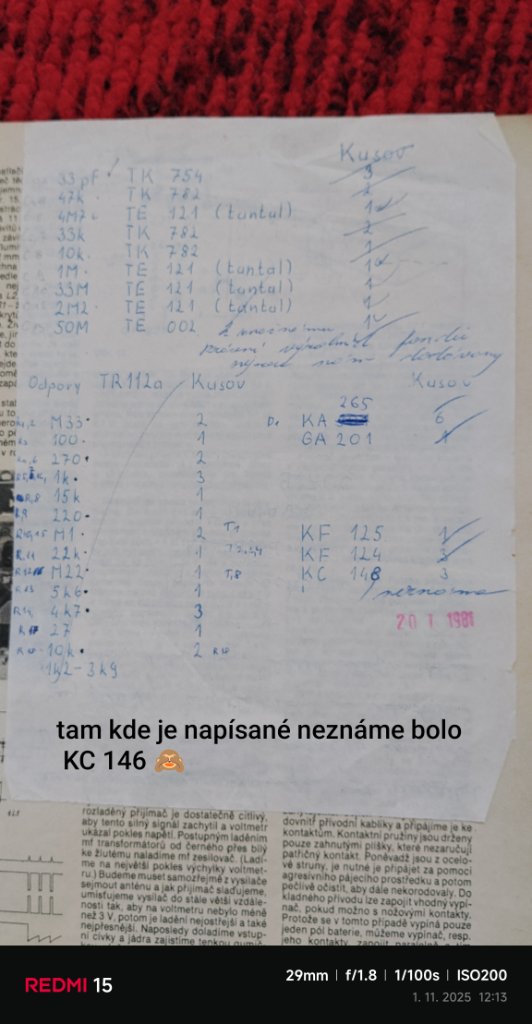 Kusov
33pf TK 754 3
47k TK 782 2
4M7 TE 121 (tantal) 1
33k TK 782 2
10k TK 782 1
1M TE 121 (tantal) 1
33M TE 121 (tantal) 1
2M2 TE 121 (tantal) 1
50M TE 002 1
Odpory TR112a Kusov Kusov
265
M33 2 D1 KA 6
100 1 GA 201 1
270 2
1k 3
R,8 15k 1
R9 220 1
M1 2 T1 KF 125 1
R11 22k 1 KF 124 3
M22 1 T,8 KC 148 3
R13 5k6 1 neznáma
R14 4k7 3 20 I 1981
27 1
10k 2
1k2-3k9
tam kde je napísané neznáme bolo
KC 146 🙈
rozladěný přijímač je dostatečně citlivý,
aby tento silný signál zachytil a voltmetr
ukázal pokles napětí. Postupným laděním
mf transformátorů od černého přes bílý
ke žlutému naladíme mf zesilovač. (Ladí-
me na největší pokles výchylky voltmet-
ru.) Budeme muset samozřejmě z vysílače
sejmout anténu a jak přijímač slaďujeme,
umisťujeme vysílač do stále větší vzdále-
nosti tak, aby na voltmetru nebylo méně
než 3 V, potom je ladění nejostřejší a také
nejpřesnější. Naposledy doladíme vstup-
ní cívky a jádra zajistíme tenkou gumič-
dovnitř přívodní kablíky a připájíme je ke
kontaktům. Kontaktní pružiny jsou drženy
pouze zahnutými plíšky, které nezaručují
spatný kontakt. Poněvadž jsou z ocelo-
vé struny, je nutné je připájet za pomoci
agresivního pájecího prostředku a potom
pečlivě očistit, aby dále nekorodovaly. Do
kladného přívodu lze zapojit vhodný vypí-
nač, pokud možno s nožovými kontakty.
Protože se v tomto případě vypíná pouze
jeden pól baterie, můžeme vypínač, resp.
jeho kontakty, zapojit paralelně
REDMI 15
29mm | f/1.8 | 1/100s | ISO200
1. 11. 2025 12:13